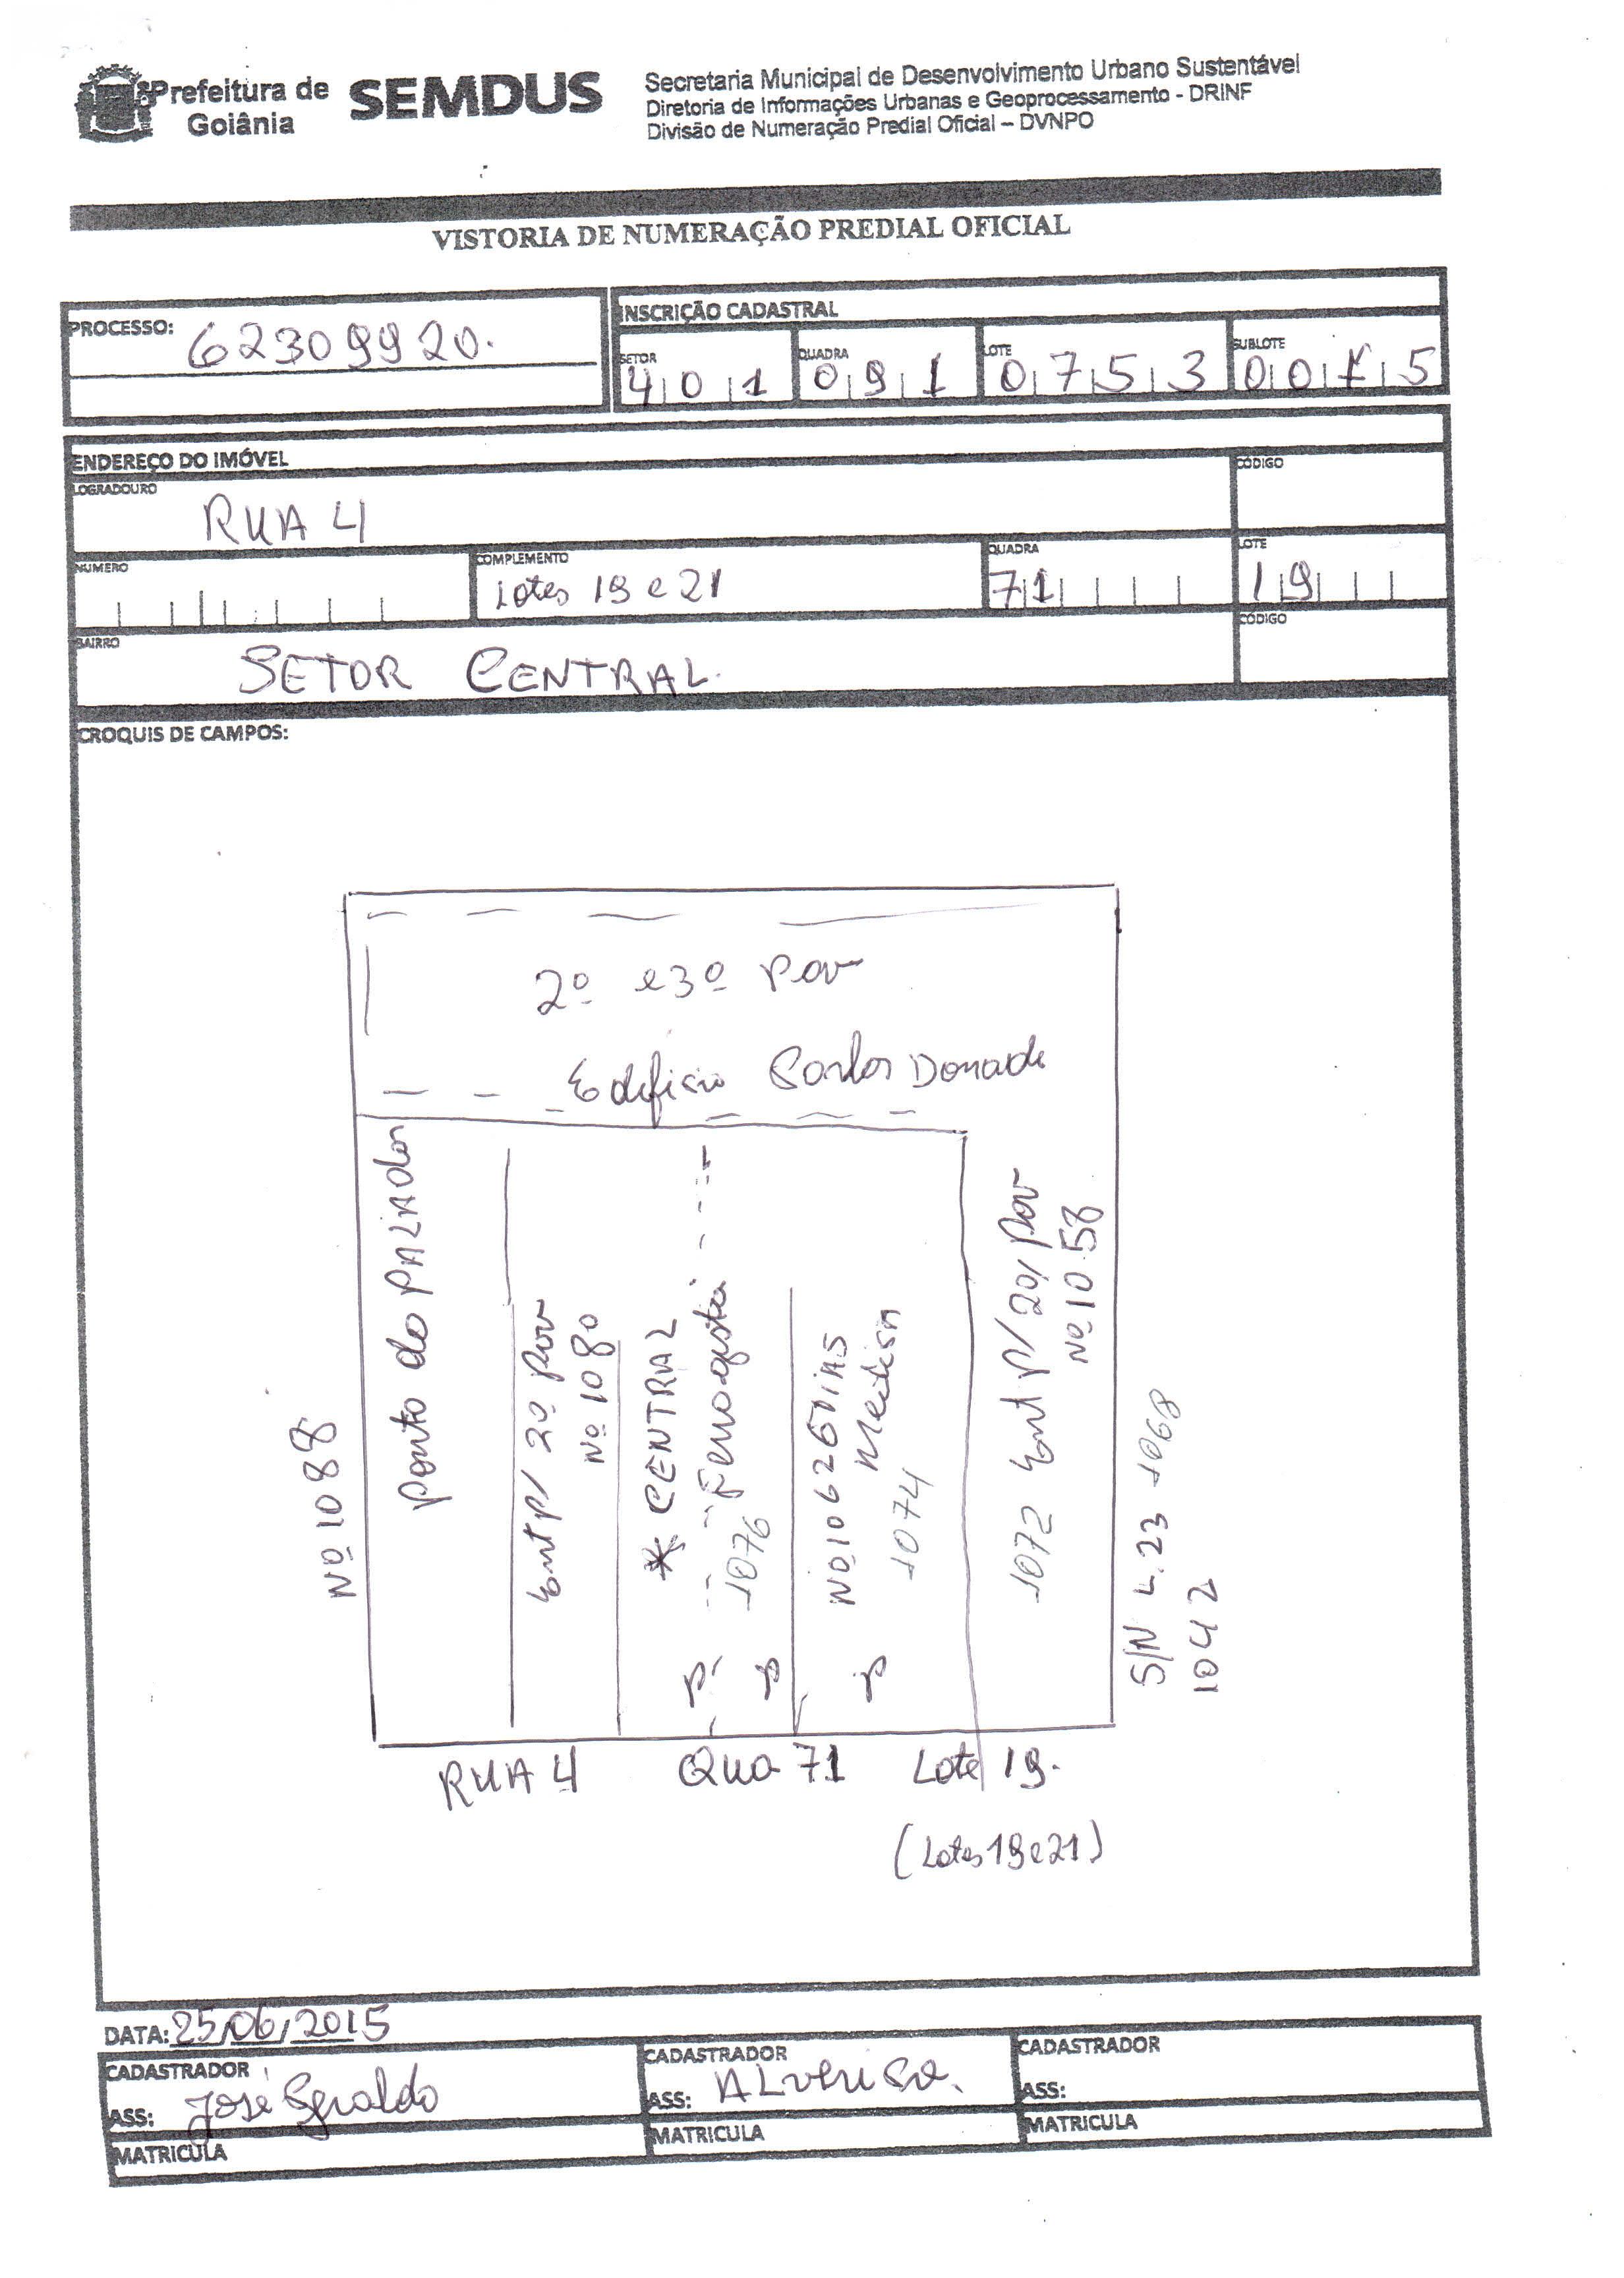 Prefeitura de Goiânia
SEMDUS
Secretaria Municipal de Desenvolvimento Urbano Sustentável
Diretoria de Informações Urbanas e Geoprocessamento - DRINF
Divisão de Numeração Predial Oficial – DVNPO
VISTORIA DE NUMERAÇÃO PREDIAL OFICIAL
PROCESSO: 62309920.
INSCRIÇÃO CADASTRAL
SETOR QUADRA LOTE SUBLOTE
401 091 0753 0015
ENDEREÇO DO IMÓVEL
LOGRADOURO CÓDIGO
RUA 4
NUMERO COMPLEMENTO QUADRA LOTE
Lotes 19 e 21 71 19
BAIRRO CÓDIGO
SETOR CENTRAL.
CROQUIS DE CAMPOS:
2º e 3º Pav
Edificio Carlos
Nº 1088
Ponto do
Ent p/ 2º Pav
Nº 1080
* CENTRAL
1076
Nº 1062
1074
1072 Ent p/ 20, Pav
Nº 1058
S/N L. 23 1068
1042
P P P
RUA 4 Qua 71 Lote 19.
(Lotes 19 e 21)
DATA: 25/06/2015
CADASTRADOR
ASS: José Geraldo
MATRICULA
CADASTRADOR
ASS:
MATRICULA
CADASTRADOR
ASS:
MATRICULA